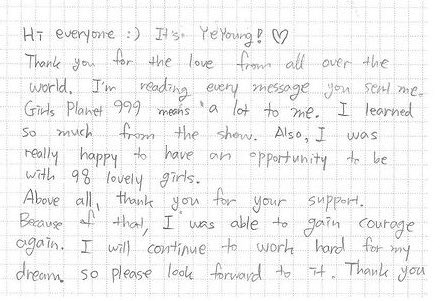 Hi everyone :) It's YeYoung! ♡
Thank you for the love from all over the
world. I'm reading every message you sent me.
Girls Planet 999 means a lot to me. I learned
so much from the show. Also, I was
really happy to have an opportunity to be
with 98 lovely girls.
Above all, thank you for your support.
Because of that, I was able to gain courage
again. I will continue to work hard for my
dream. so please look forward to it. Thank you